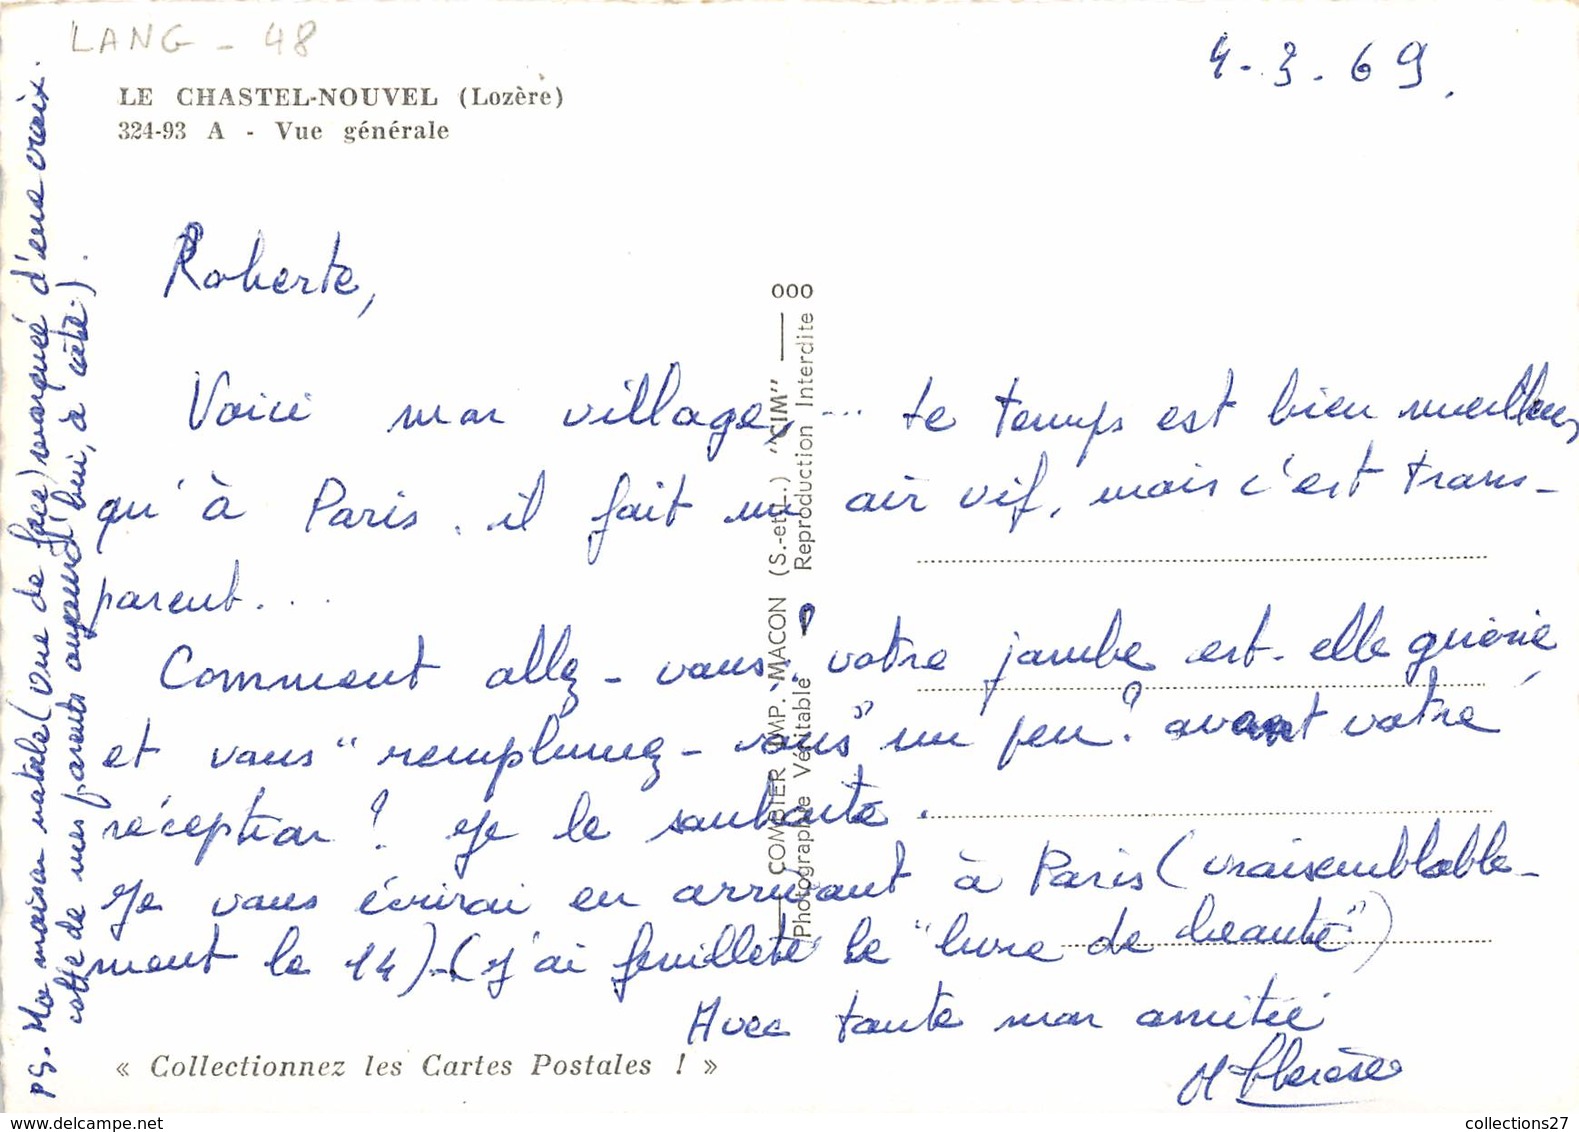 LANG - 48
4-3.69.
LE CHASTEL-NOUVEL (Lozère)
324-93 A - Vue générale
Roberte,
Voici mon village, ... Le temps est bien meilleur
qu'à Paris. il fait un air vif, mais c'est trans-
parent...
Comment allez-vous? votre jambe est-elle guérie,
et vous "remplumez-vous" un peu? avant votre
réception? Je le souhaite.
Je vous écrirai en arrivant à Paris (vraisemblable-
ment le 14)-(J'ai feuilleté le "livre de beauté")
Avec toute mon amitié
M Thérèse
PS. Ma maison natale (vue de face) marquée d'une croix.
celle de mes parents aujourd'hui, à côté).
COMBIER IMP. MACON (S.-et-L.) "CIM" 000
Photographie Véritable Reproduction Interdite
« Collectionnez les Cartes Postales ! »
collections27